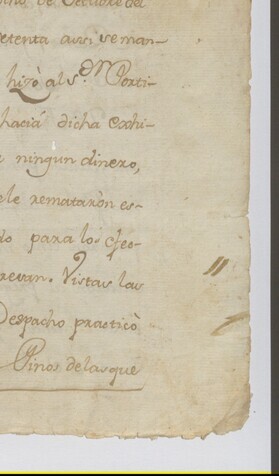 de Octubre del
setenta assi se man-
hizo al S.ᵒʳ Porti-
hacia dicha exhi-
ningun dinero,
ele remataron es-
do para los efec-
revan. Vistas las
Despacho practicò
Pinos de las que